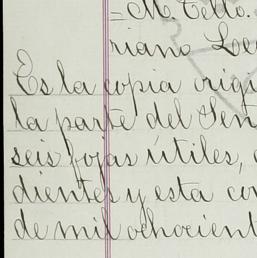 =M. Tello.
riano Loe
Es la copia origi
la parte del Sen
seis fojas útiles,
dientes y esta con
de mil ochocient